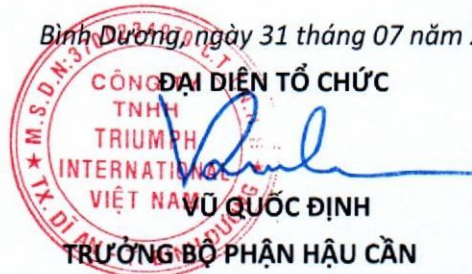 Bình Dương, ngày 31 tháng 07 năm
ĐẠI DIỆN TỔ CHỨC
CÔNG TY
TNHH
TRIUMPH
INTERNATIONAL
VIỆT NAM
VŨ QUỐC ĐỊNH
TRƯỞNG BỘ PHẬN HẬU CẦN